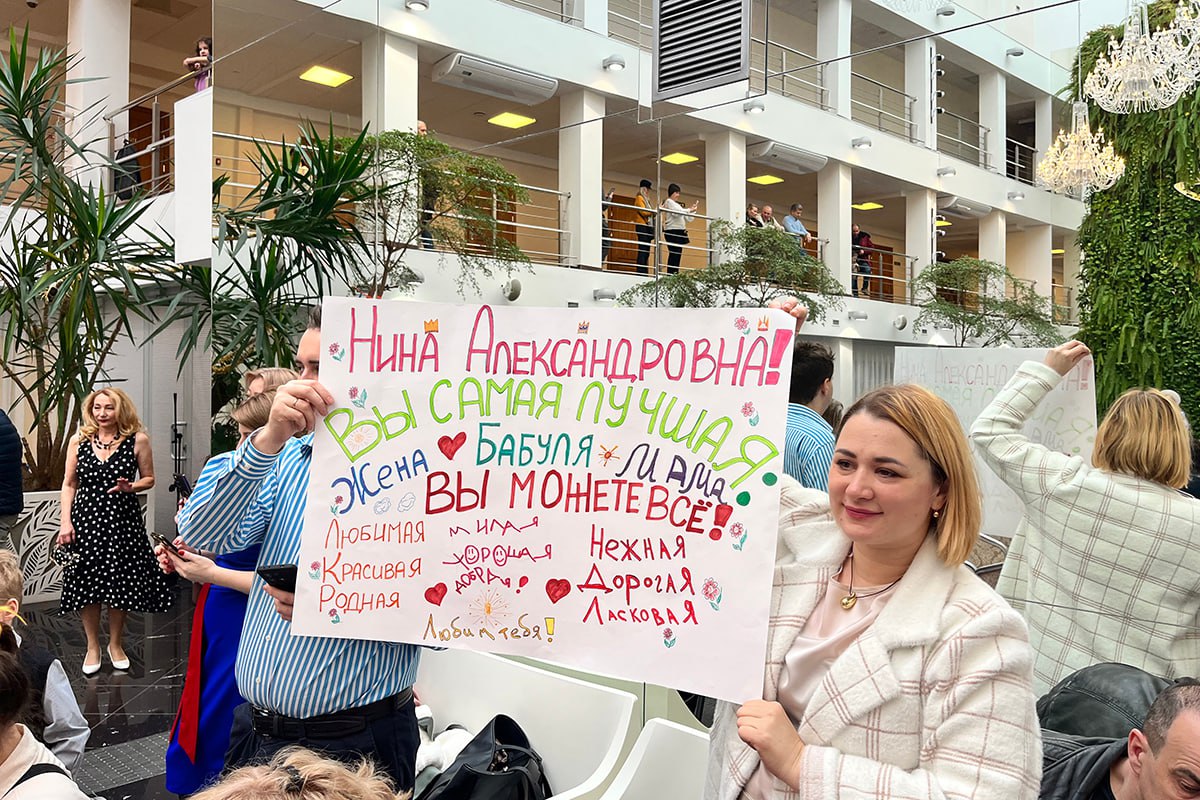 Нина Александровна!
Вы самая лучшая
Жена Бабуля Мама
Вы можете всё!
Любимая милая Нежная
Красивая хорошая Дорогая
Родная добрая Ласковая
Любим тебя!